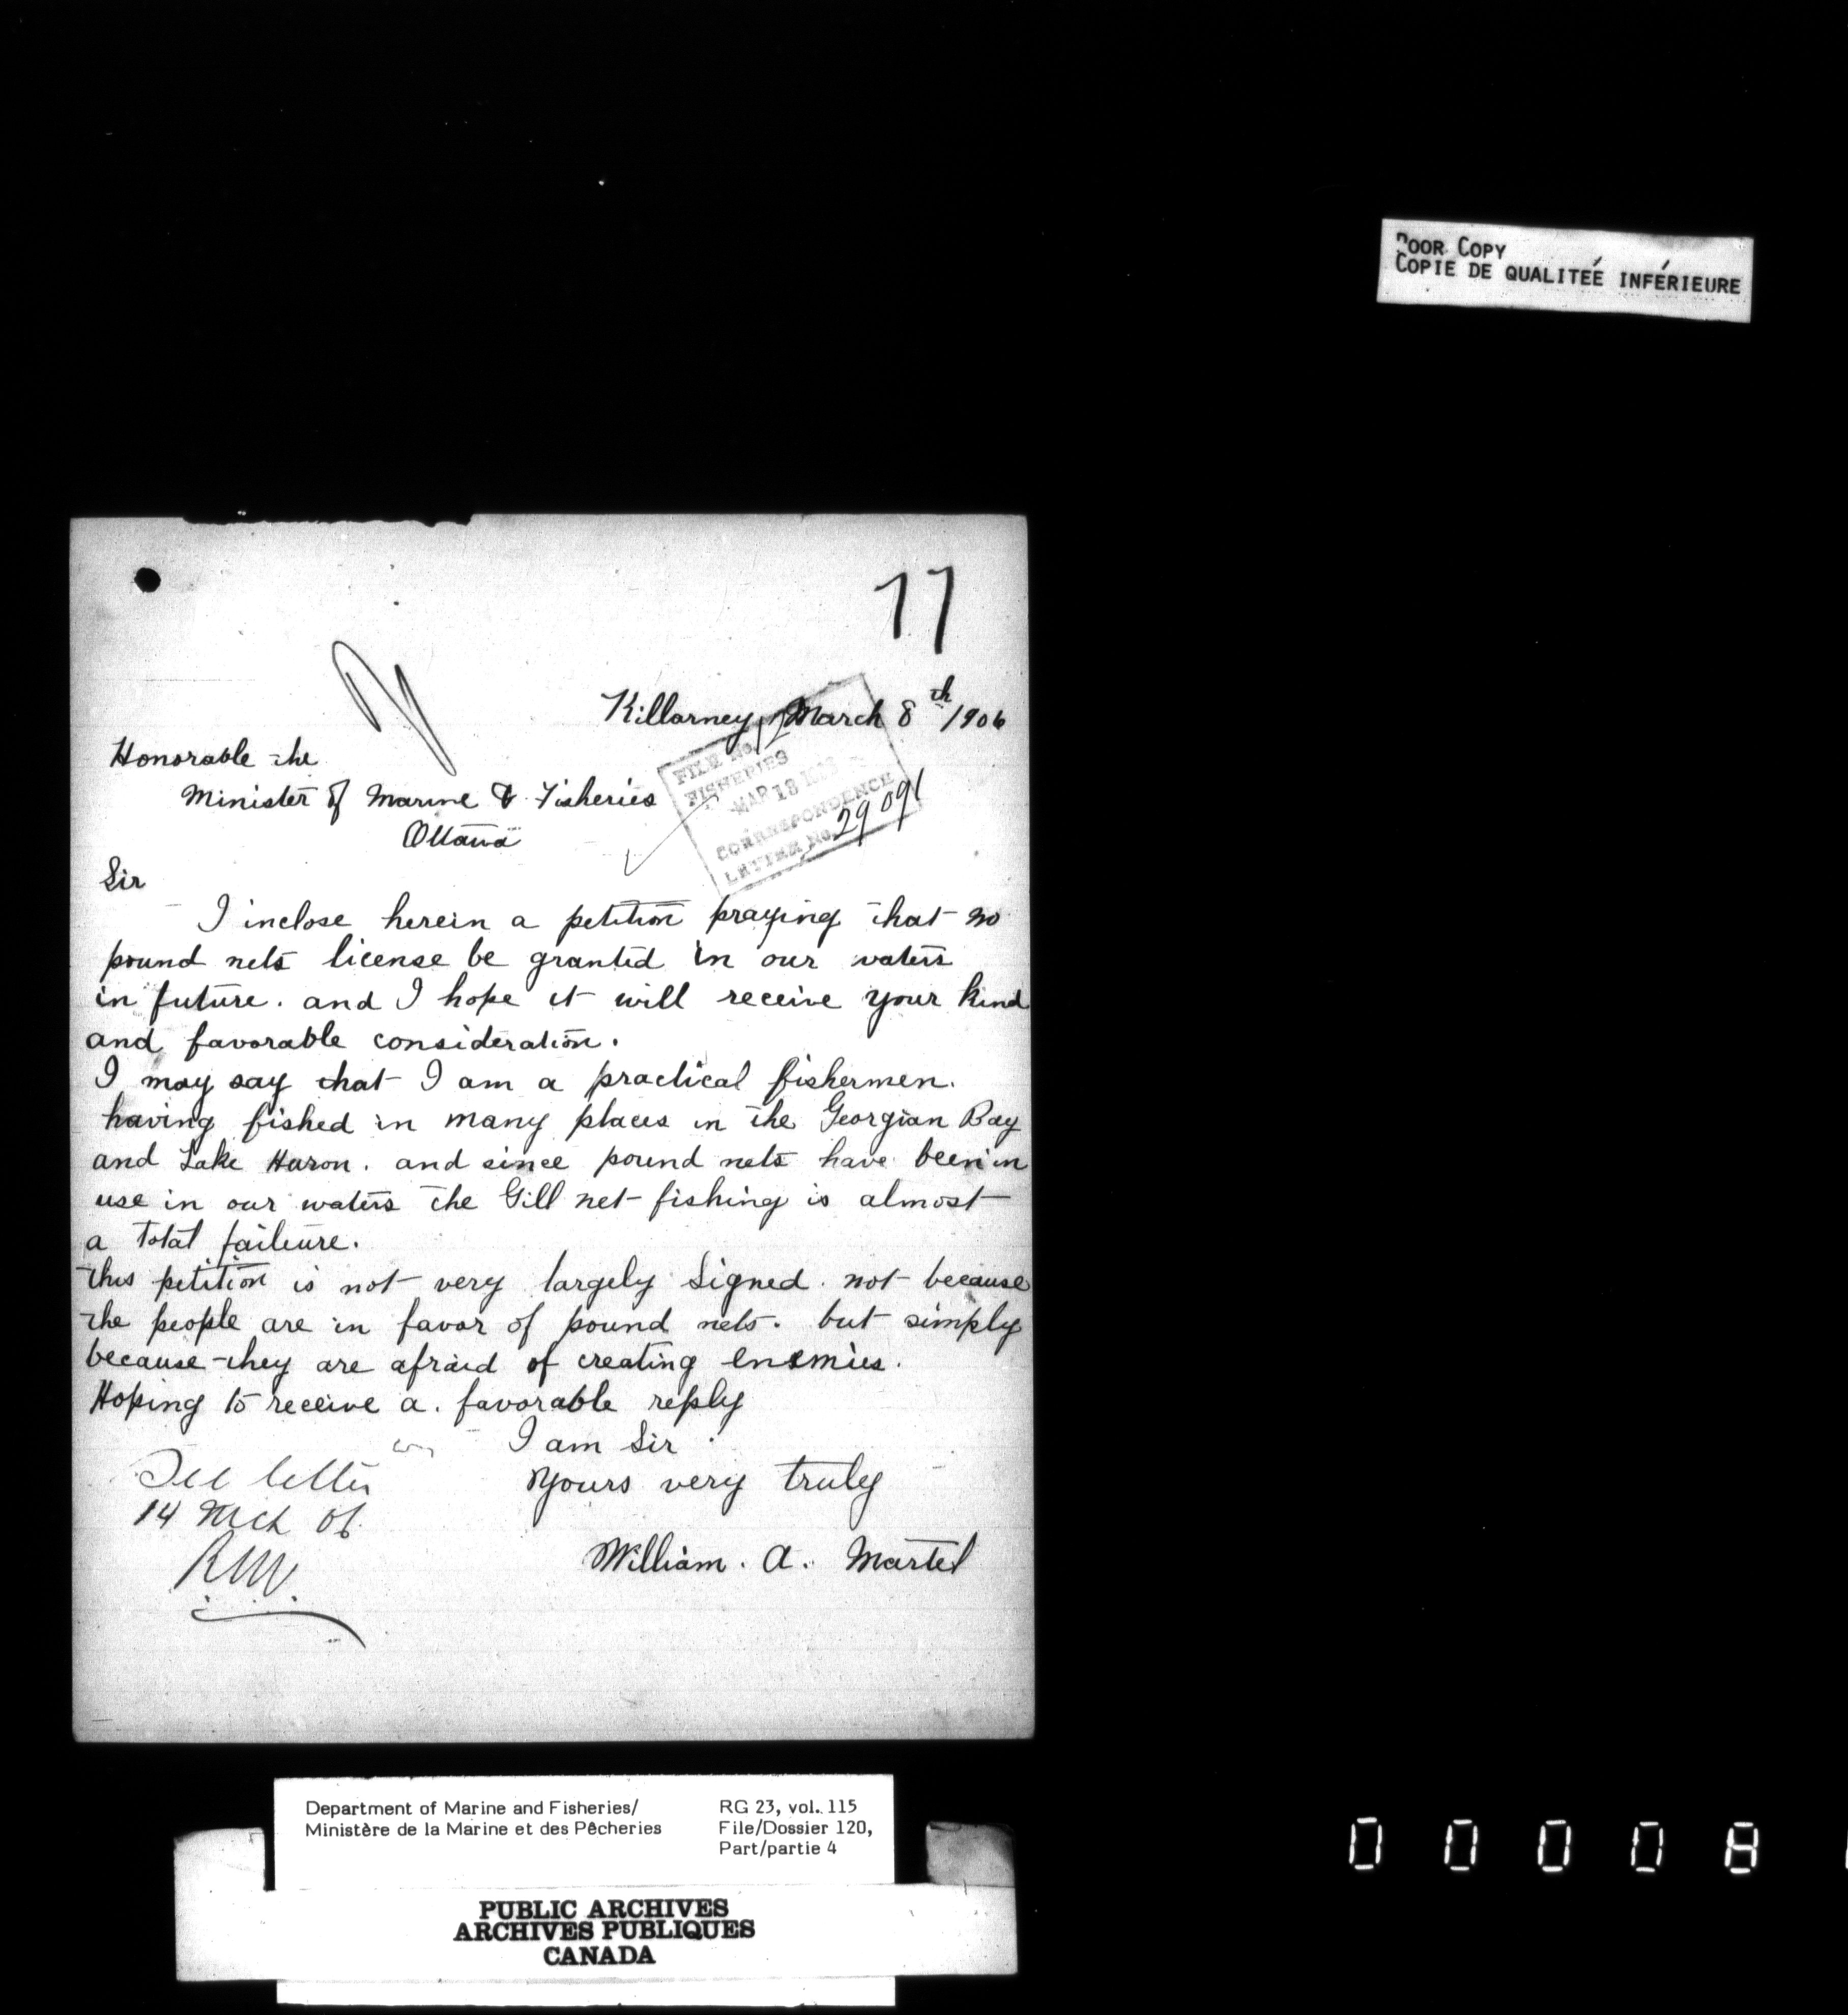 POOR COPY
COPIE DE QUALITEÉ INFÉRIEURE
77
Killarney March 8th/1906
Honorable the
Minister of Marine & Fisheries
Ottawa
FILE No.
FISHERIES
MAR 13 1906
CORRESPONDENCE
LETTER No. 29091
Sir
I inclose herein a petition praying that no
pound nets license be granted in our waters
in future. and I hope it will receive your kind
and favorable consideration.
I may say that I am a practical fishermen.
having fished in many places in the Georgian Bay
and Lake Huron. and since pound nets have been in
use in our waters the Gill net fishing is almost
a total faileure.
this petition is not very largely signed. not because
the people are in favor of pound nets. but simply
because they are afraid of creating enemies.
Hoping to receive a. favorable reply
I am Sir
Yours very truly
William. A. Martel
See letter
14 Mch 06.
Department of Marine and Fisheries/
Ministère de la Marine et des Pêcheries
RG 23, vol. 115
File/Dossier 120,
Part/partie 4
PUBLIC ARCHIVES
ARCHIVES PUBLIQUES
CANADA
0 0 0 0 8